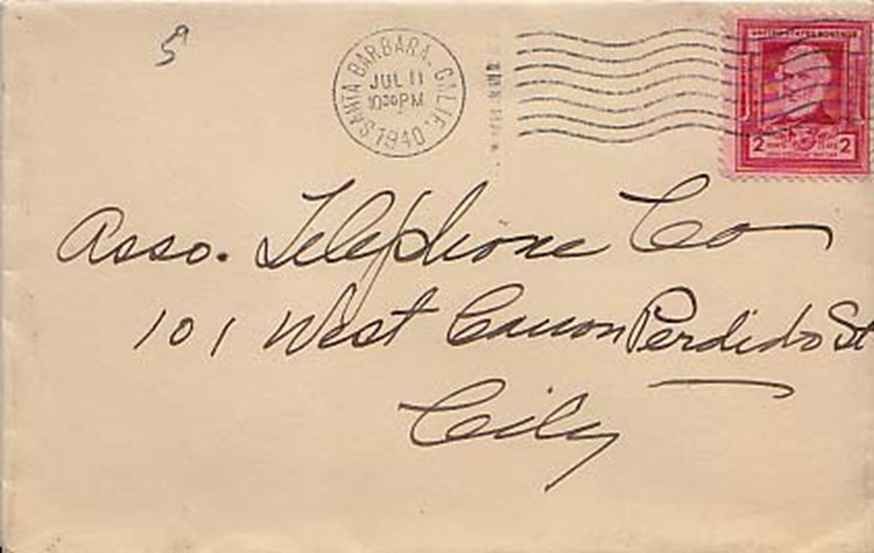 5
SANTA BARBARA, CALIF.
JUL 11
10 30 PM
1940
UNITED STATES POSTAGE
2 2
Asso. Telephone Co
101 West Canon Perdido St
City